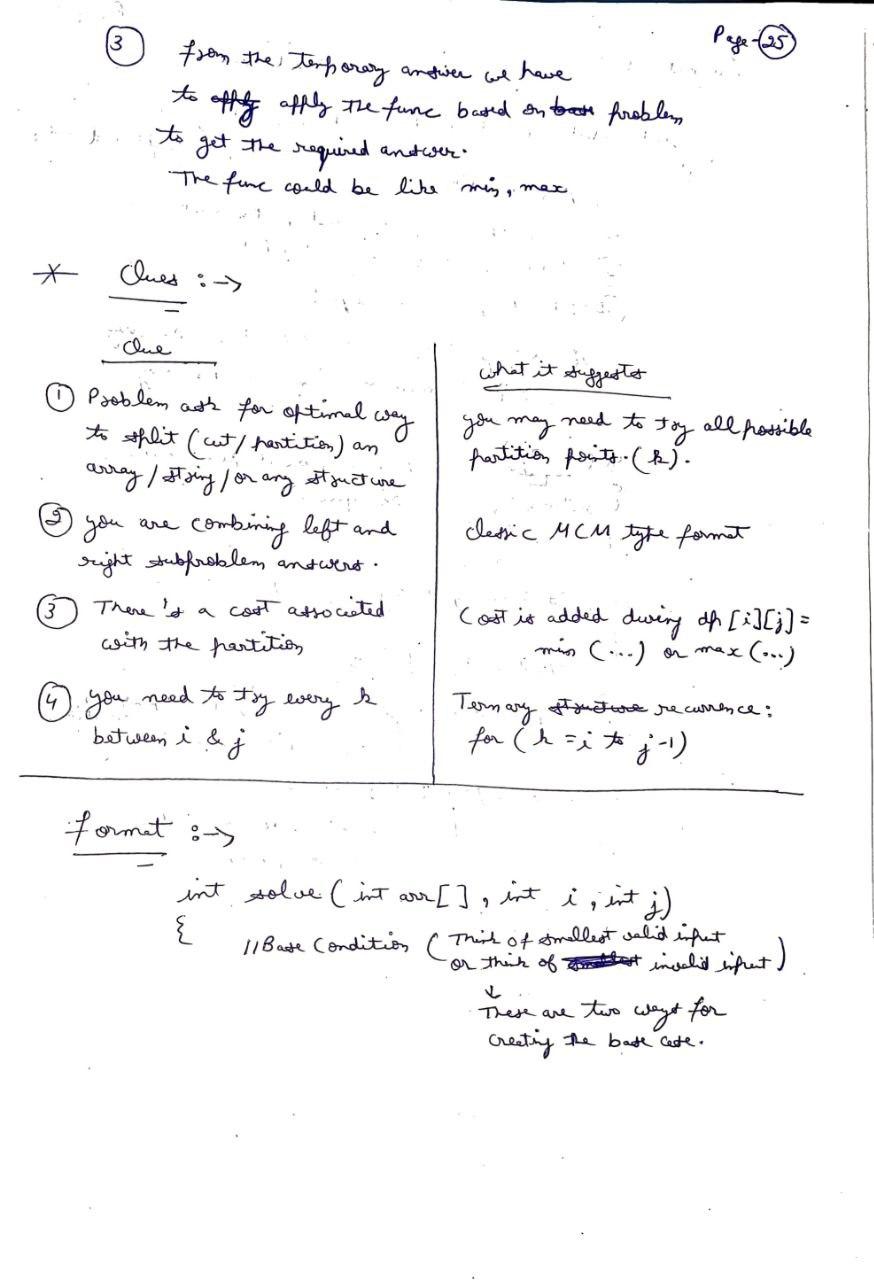 Page-25
3 from the temporary answer we have
to apply apply the func based on base problem
to get the required answer.
The func could be like min, max
* Clues :->
Clue
what it suggests
1 Problem ask for optimal way
to split (cut/partition) an
array/string/or any structure
you may need to try all possible
partition points. (k).
2 you are combining left and
right subproblem answers.
classic MCM type format
3 There's a cost associated
with the partition
Cost is added during dp[i][j]=
min (...) or max (...)
4 you need to try every k
between i & j
Ternary structure recurrence:
for (k = i to j-1)
Format :->
int solve (int arr[], int i, int j)
{
//Base Condition (Think of smallest valid input
or think of smallest invalid input)
↓
These are two ways for
creating the base case.